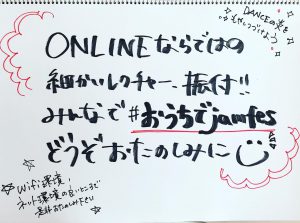 DANCEの火を
もやしつづけよう
ONLINEならではの
細かいレクチャー、振付!!
みんなで#おうちでjamfes
どうぞおたのしみに
Wifi環境!
ネット環境の良いところで
お楽しみ下さい